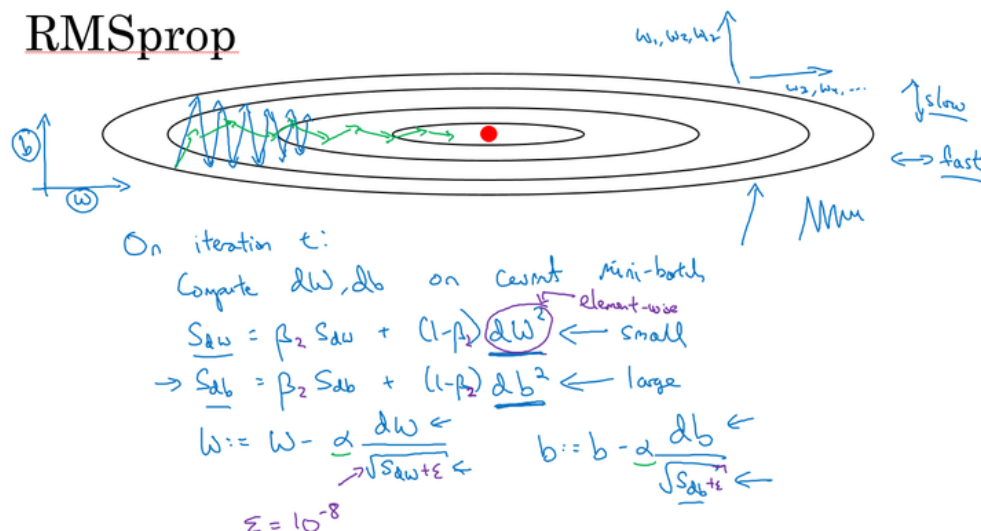 RMSprop
w₁, w₂, w₂
w₂, w₄, ...
slow
fast
b
w
On iteration t:
Compute dW, db on current mini-batch
element-wise
S_dw = β₂ S_dw + (1-β₂) dW² ← small
→ S_db = β₂ S_db + (1-β₂) db² ← large
W := W - α dW / √S_dw+ε ← b := b - α db / √S_db+ε ←
ε = 10⁻⁸